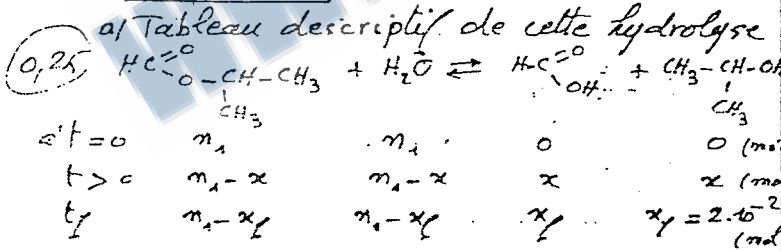 a/ Tableau descriptif de cette hydrolyse
0,25 HC=O-O-CH-CH3 + H2O ⇌ H-C=O + CH3-CH-OH
CH3 OH CH3
à t=0 n1 n1 0 0 (mol
t>0 n1-x n1-x x x (mo
tf n1-xf n1-xf xf xf = 2.10-2
(mol